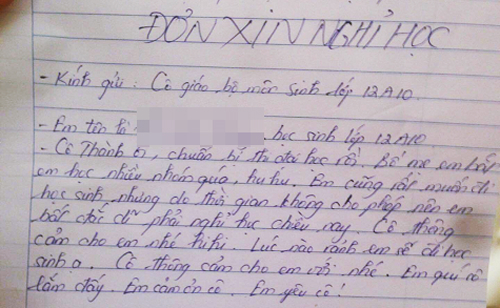 ĐƠN XIN NGHỈ HỌC
- Kính gửi: Cô giáo bộ môn sinh lớp 12A10.
- Em tên là học sinh lớp 12A10
- Cô Thành ơi, chuẩn bị thi đại học rồi. Bố mẹ em bắt
em học nhiều nhóm quá, hu hu. Em cũng rất muốn đi
học sinh, nhưng do thời gian không cho phép nên em
bất đắc dĩ phải nghỉ học chiều nay. Cô thông
cảm cho em nhé hi hi. Lúc nào rảnh em sẽ đi học
sinh ạ. Cô thông cảm cho em với nhé. Em quý cô
lắm đấy. Em cảm ơn cô. Em yêu cô!